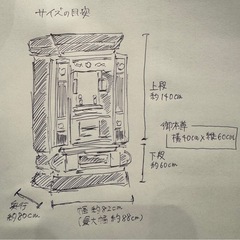 サイズの目安
上段
約140cm
御本尊
横40cm×縦60cm
下段
約60cm
奥行
約80cm
幅約82cm
(最大幅約88cm)